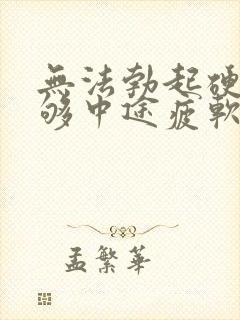 無法勃起硬
够中途疲軟
孟繁華